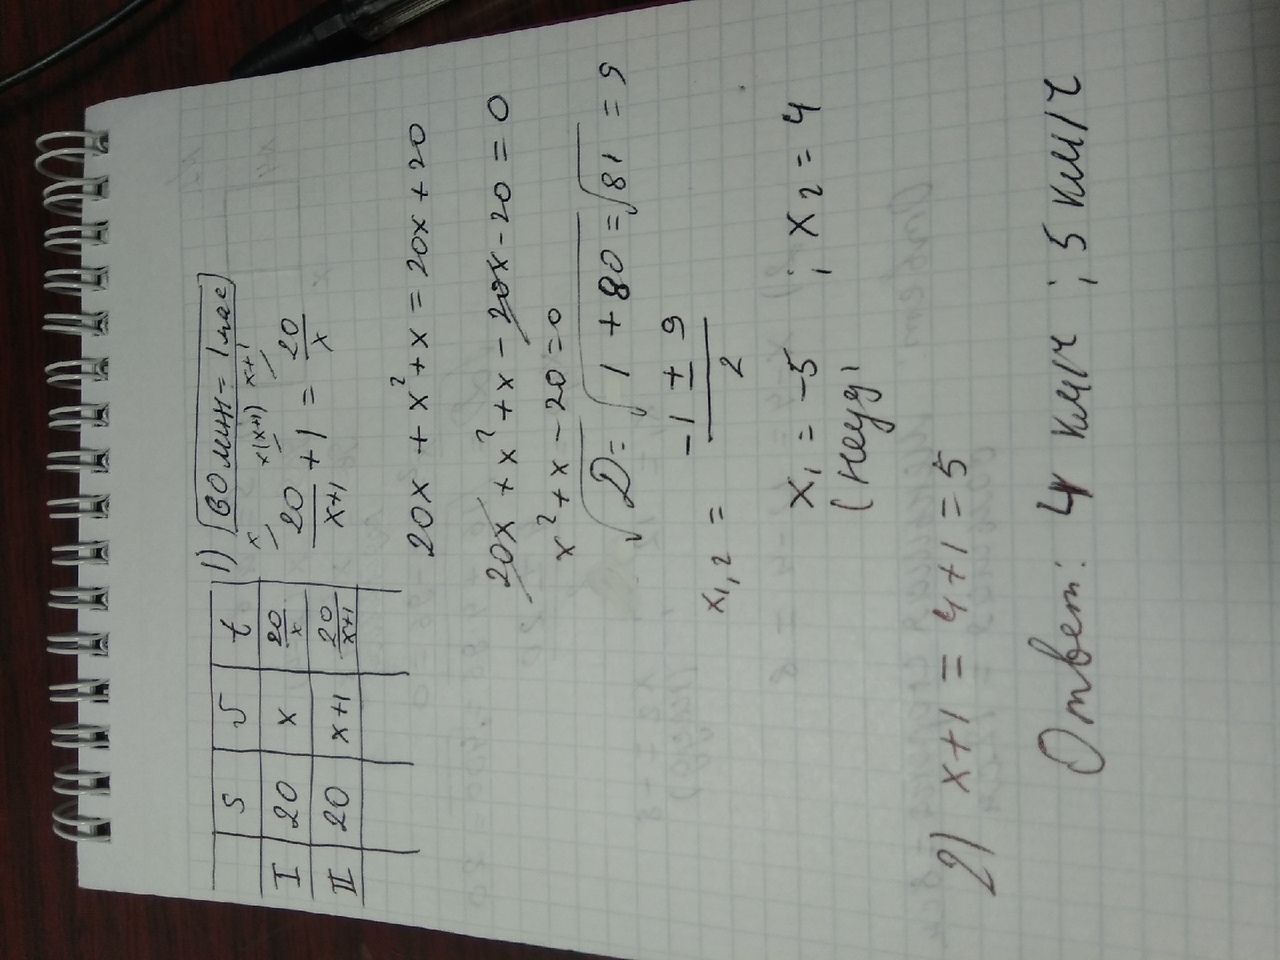 S V t
I 20 x 20/x
II 20 x+1 20/(x+1)
1) 60 мин = 1 час
x x(x+1) x+1
20/(x+1) + 1 = 20/x
20x + x² + x = 20x + 20
20x + x² + x - 20x - 20 = 0
x² + x - 20 = 0
√D = √1 + 80 = √81 = 9
x₁,₂ = (-1 ± 9)/2
x₁ = -5 ; x₂ = 4
(неуд)
2) x+1 = 4+1 = 5
Ответ: 4 км/ч ; 5 км/ч